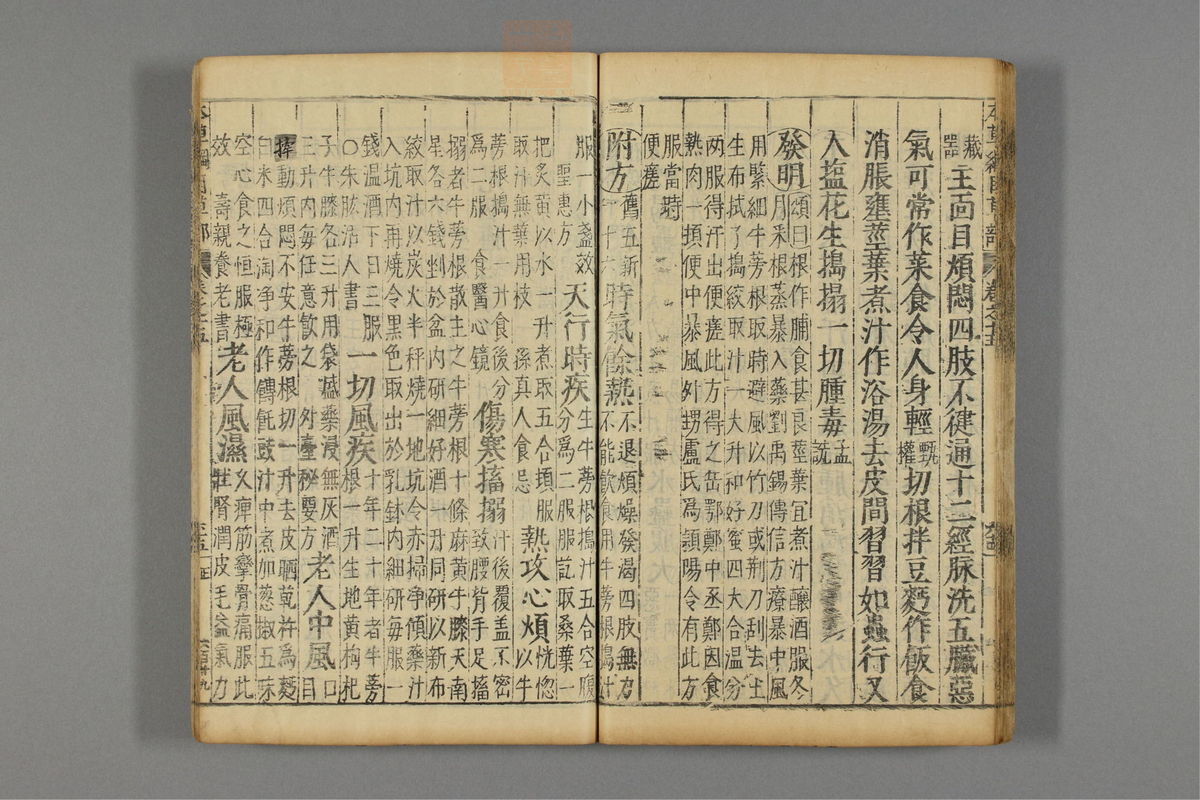 藏器
主面目煩悶四肢不健通十二經脉洗五臟惡
氣可常作菜食令人身輕甄權切根拌豆麪作飯食
消脹壅莖葉煮汁作浴湯去皮間習習如蟲行又
入塩花生搗搨一切腫毒孟詵
發明頌曰根作脯食甚良莖葉宜煮汁釀酒服冬
月采根蒸暴入藥劉禹錫傳信方療暴中風
用緊細牛蒡根取時避風以竹刀或荆刀刮去土
生布拭了搗絞取汁一大升和好蜜四大合温分
兩服得汗出便瘥此方得之岳鄂鄭中丞鄭因食
熱肉一頓便中暴風外甥盧氏爲潁陽令有此方
服當時
便瘥
附方舊五新十六時氣餘熱不退煩燥發渴四肢無力
不能飲食用牛蒡根搗汁
服一小盞效
聖惠方
天行時疾生牛蒡根搗汁五合空腹
分爲二服服訖取桑葉一
把炙黄以水一升煮取五合頓服
取汁無葉用枝 孫真人食忌
熱攻心煩恍惚
以牛
蒡根搗汁一升食後分
爲二服 食醫心鏡
傷寒搐搦汗後覆盖不密
致腰背手足搐
搦者牛蒡根散主之牛蒡根十條麻黄牛膝天南
星各六錢剉於盆内研細好酒一升同研以新布
絞取汁以炭火半秤燒一地坑令赤掃净傾藥汁
入坑内再燒令黑色取出於乳鉢内細研每服一
錢温酒下日三服
○朱肱活人書
一切風疾十年二十年者牛蒡
根一升生地黄枸杞
子牛膝各三升用袋盛藥浸無灰酒
三升内每任意飲之 外臺秘要方
老人中風口
目
動煩悶不安牛蒡根切一升去皮晒乾杵爲麪
白米四合淘净和作餺飥豉汁中煮加葱椒五味
空心食之恒服極
效 壽親養老書
老人風濕久痺筋攣骨痛服此
壯腎潤皮毛益氣力